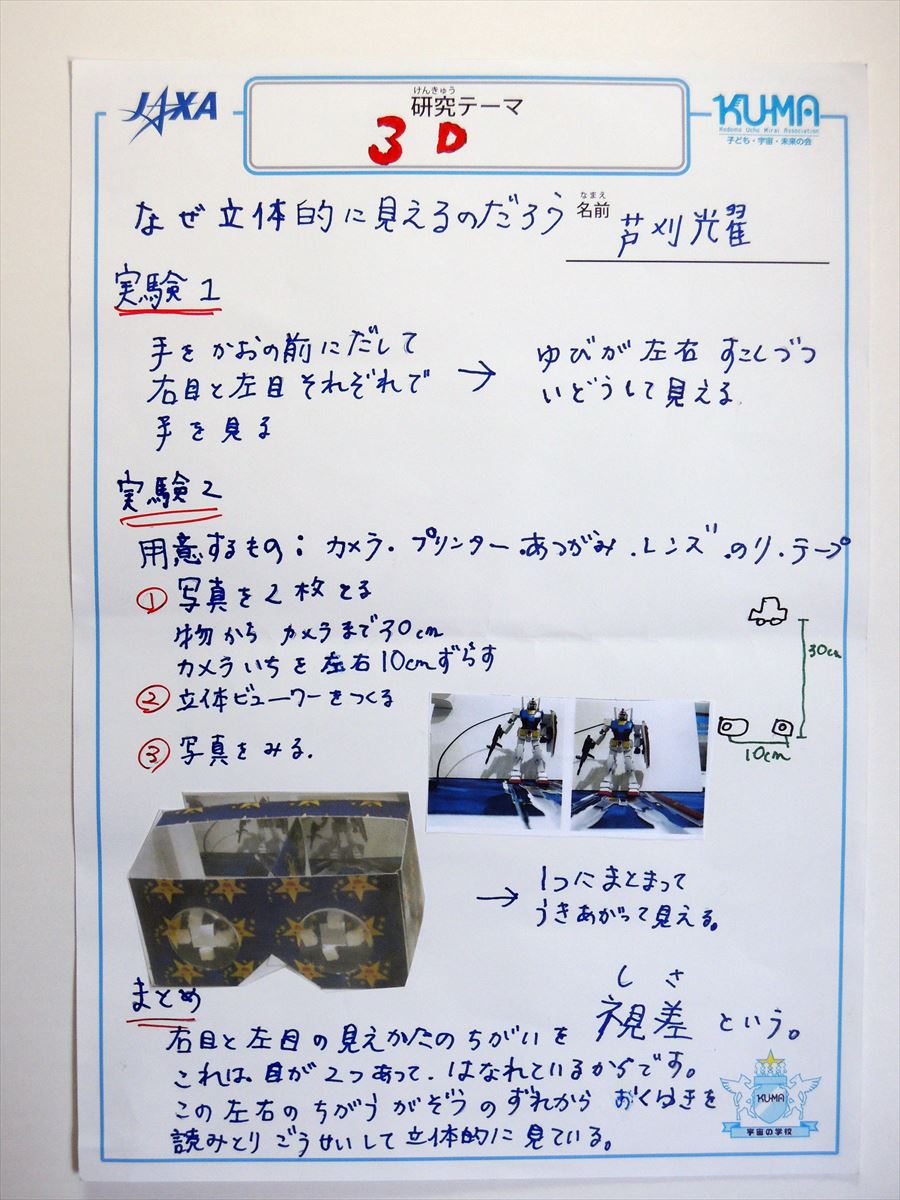 JAXA
けんきゅう
研究テーマ
3D
KU-MA
Kodomo Uchu Mirai Association
子ども・宇宙・未来の会
なぜ立体的に見えるのだろう
なまえ
名前
芦刈光翟
実験1
手をかおの前にだして
右目と左目それぞれで
手を見る
→
ゆびが左右すこしづつ
いどうして見える。
実験2
用意するもの:カメラ・プリンター・あつがみ・レンズ・のり・テープ
① 写真を2枚とる
物からカメラまで30cm
カメラいちを左右10cmずらす
30cm
10cm
② 立体ビューワーをつくる
③ 写真をみる.
→
1つにまとまって
うきあがって見える。
まとめ
右目と左目の見えかたのちがいを
しさ
視差という。
これは、目が2つあって、はなれているからです。
この左右のちがうがぞうのずれから おくゆきを
読みとりごうせいして立体的に見ている。
KU-MA
宇宙の学校